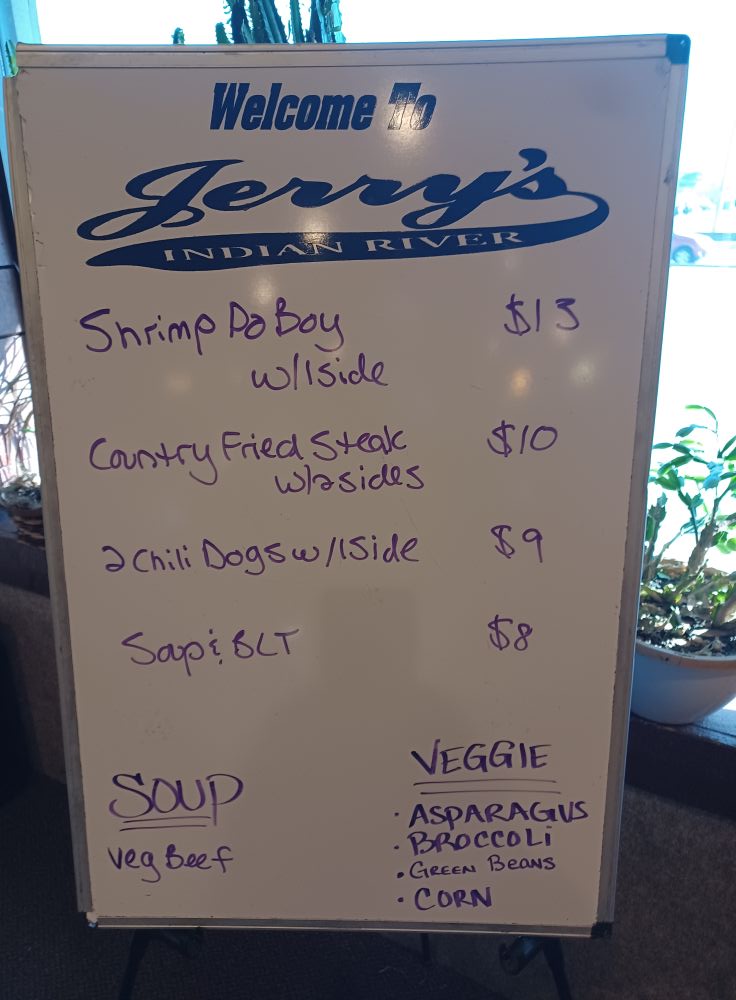 Welcome To
Jerry's
INDIAN RIVER
Shrimp Po Boy $13
w/1side
Country Fried Steak $10
w/2sides
2 Chili Dogs w/1Side $9
Soup & BLT $8
SOUP
Veg Beef
VEGGIE
· ASPARAGUS
· BROCCOLi
· GREEN BEANS
· CORN